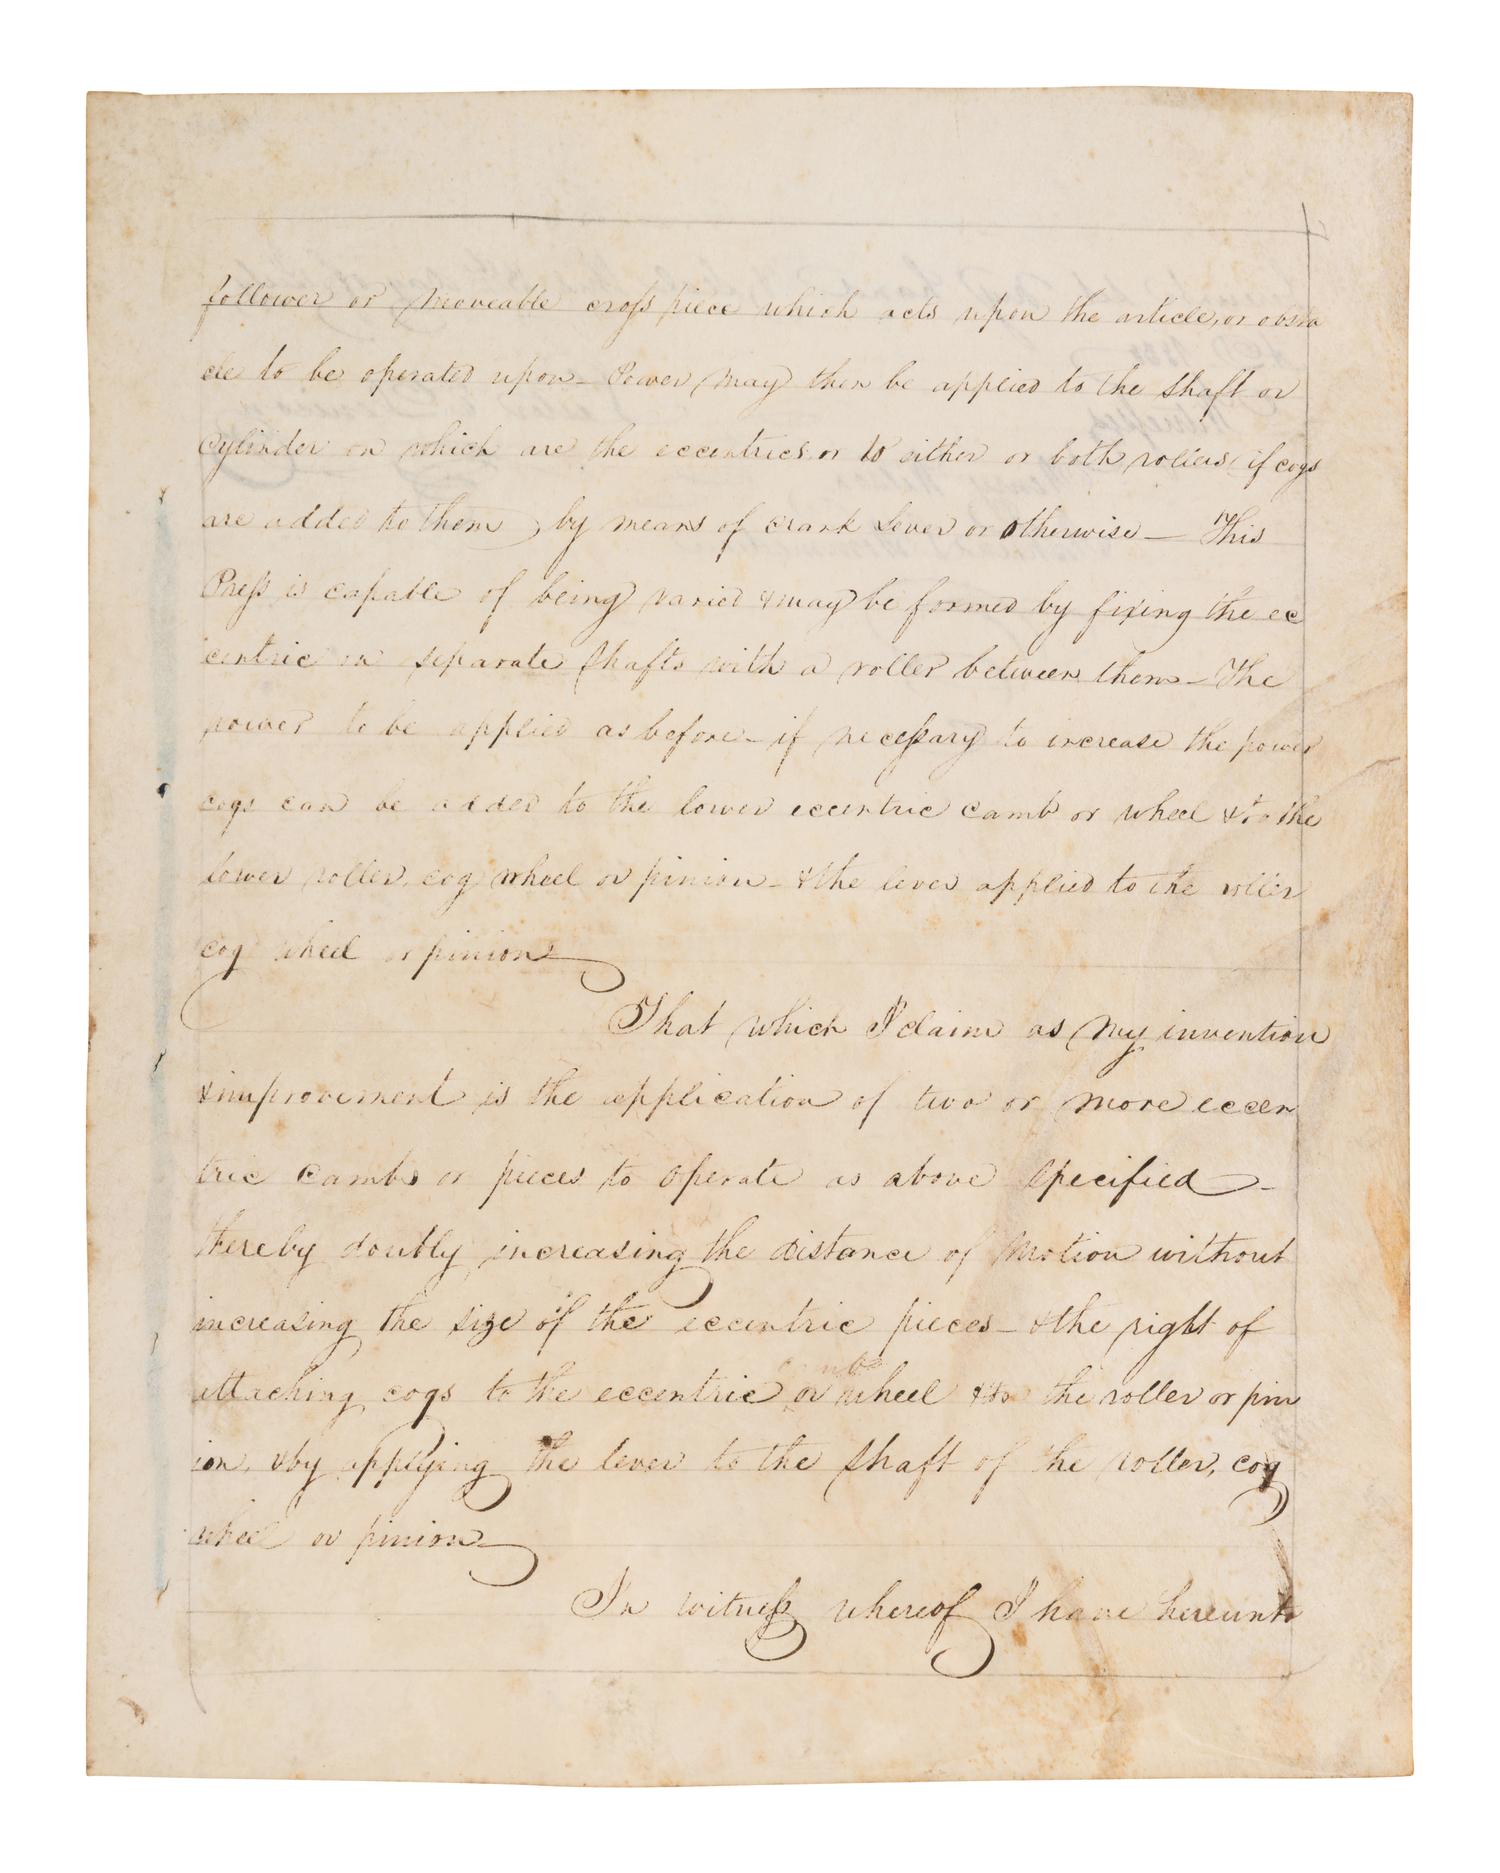 follower or moveable cross piece which acts upon the article, or obsta
cle to be operated upon – Power may then be applied to the shaft or
Cylinder on which are the eccentrics or to either or both rollers (if cogs
are added to them) by means of crank Lever or otherwise — This
Press is capable of being varied & may be formed by fixing the ec
centric on separate shafts with a roller between them – The
power to be applied as before – if necessary to increase the power
cogs can be added to the lower eccentric camb or wheel & to the
lower roller, cog wheel or pinion – & the lever applied to the roller
cog wheel or pinion
That which I claim as my invention
& improvement is the application of two or more eccen
tric cambs or pieces to operate as above specified –
thereby doubly increasing the distance of motion without
increasing the size of the eccentric pieces – & the right of
cambs
attaching cogs to the eccentric or wheel & to the roller or pin
ion, & by applying the lever to the shaft of the roller, cog
wheel or pinion
In witness whereof I have hereunto